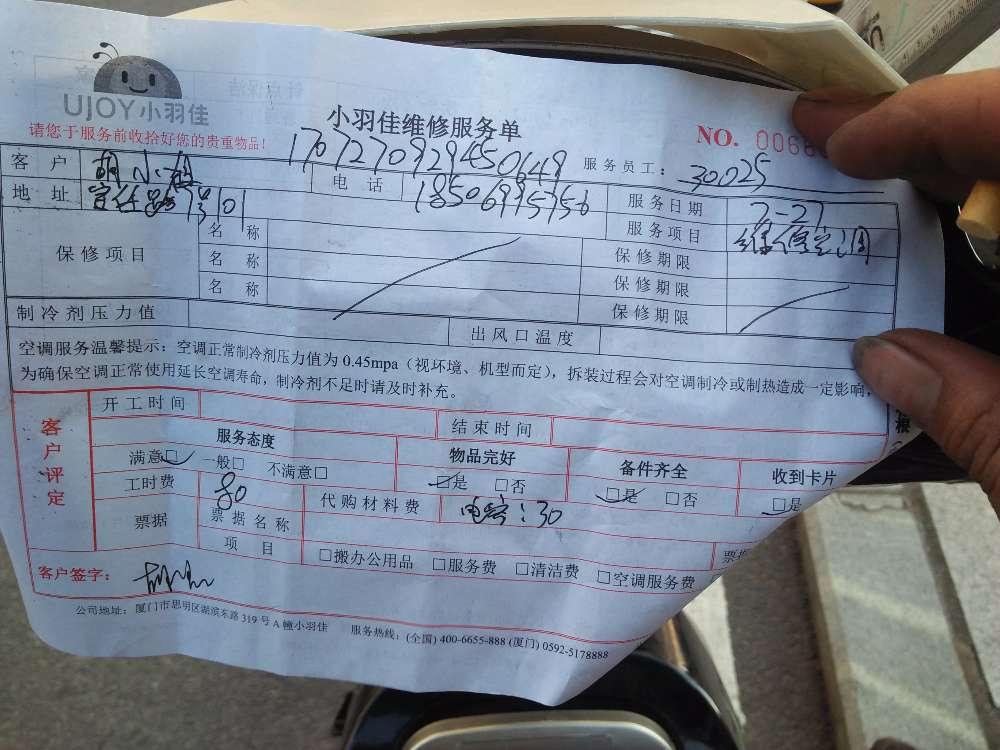 UJOY小羽佳
小羽佳维修服务单
NO. 0066
请您于服务前收拾好您的贵重物品!
170727092945064​9 服务员工: 30025
客户 胡小姐 电话 18506995756 服务日期 7-27
地址 101 服务项目 维修空调
保修项目 名称 保修期限
名称 保修期限
名称 保修期限
制冷剂压力值 出风口温度
空调服务温馨提示:空调正常制冷剂压力值为0.45mpa(视环境、机型而定),拆装过程会对空调制冷或制热造成一定影响,
为确保空调正常使用延长空调寿命,制冷剂不足时请及时补充。
客户评定 开工时间 结束时间
服务态度 物品完好 备件齐全 收到卡片
满意□ 一般□ 不满意□ □是 □否 □是 □否 □是
工时费 80 代购材料费 电容:30
票据 票据名称 票据
项目 □搬办公用品 □服务费 □清洁费 □空调服务费
客户签字:
公司地址:厦门市思明区湖滨东路319号A幢小羽佳 服务热线:(全国)400-6655-888 (厦门)0592-5178888